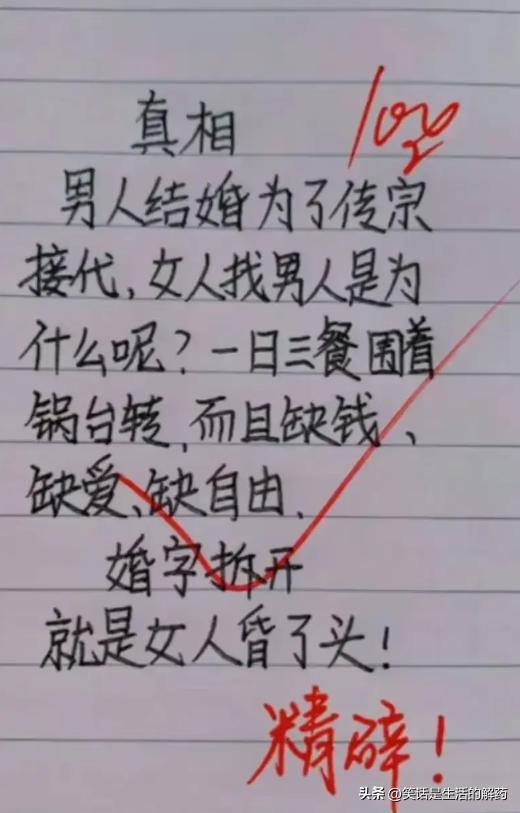 真相
100
男人结婚为了传宗
接代,女人找男人是为
什么呢?一日三餐围着
锅台转,而且缺钱、
缺爱、缺自由.
婚字拆开
就是女人昏了头!
精辟!
头条 @笑话是生活的解药